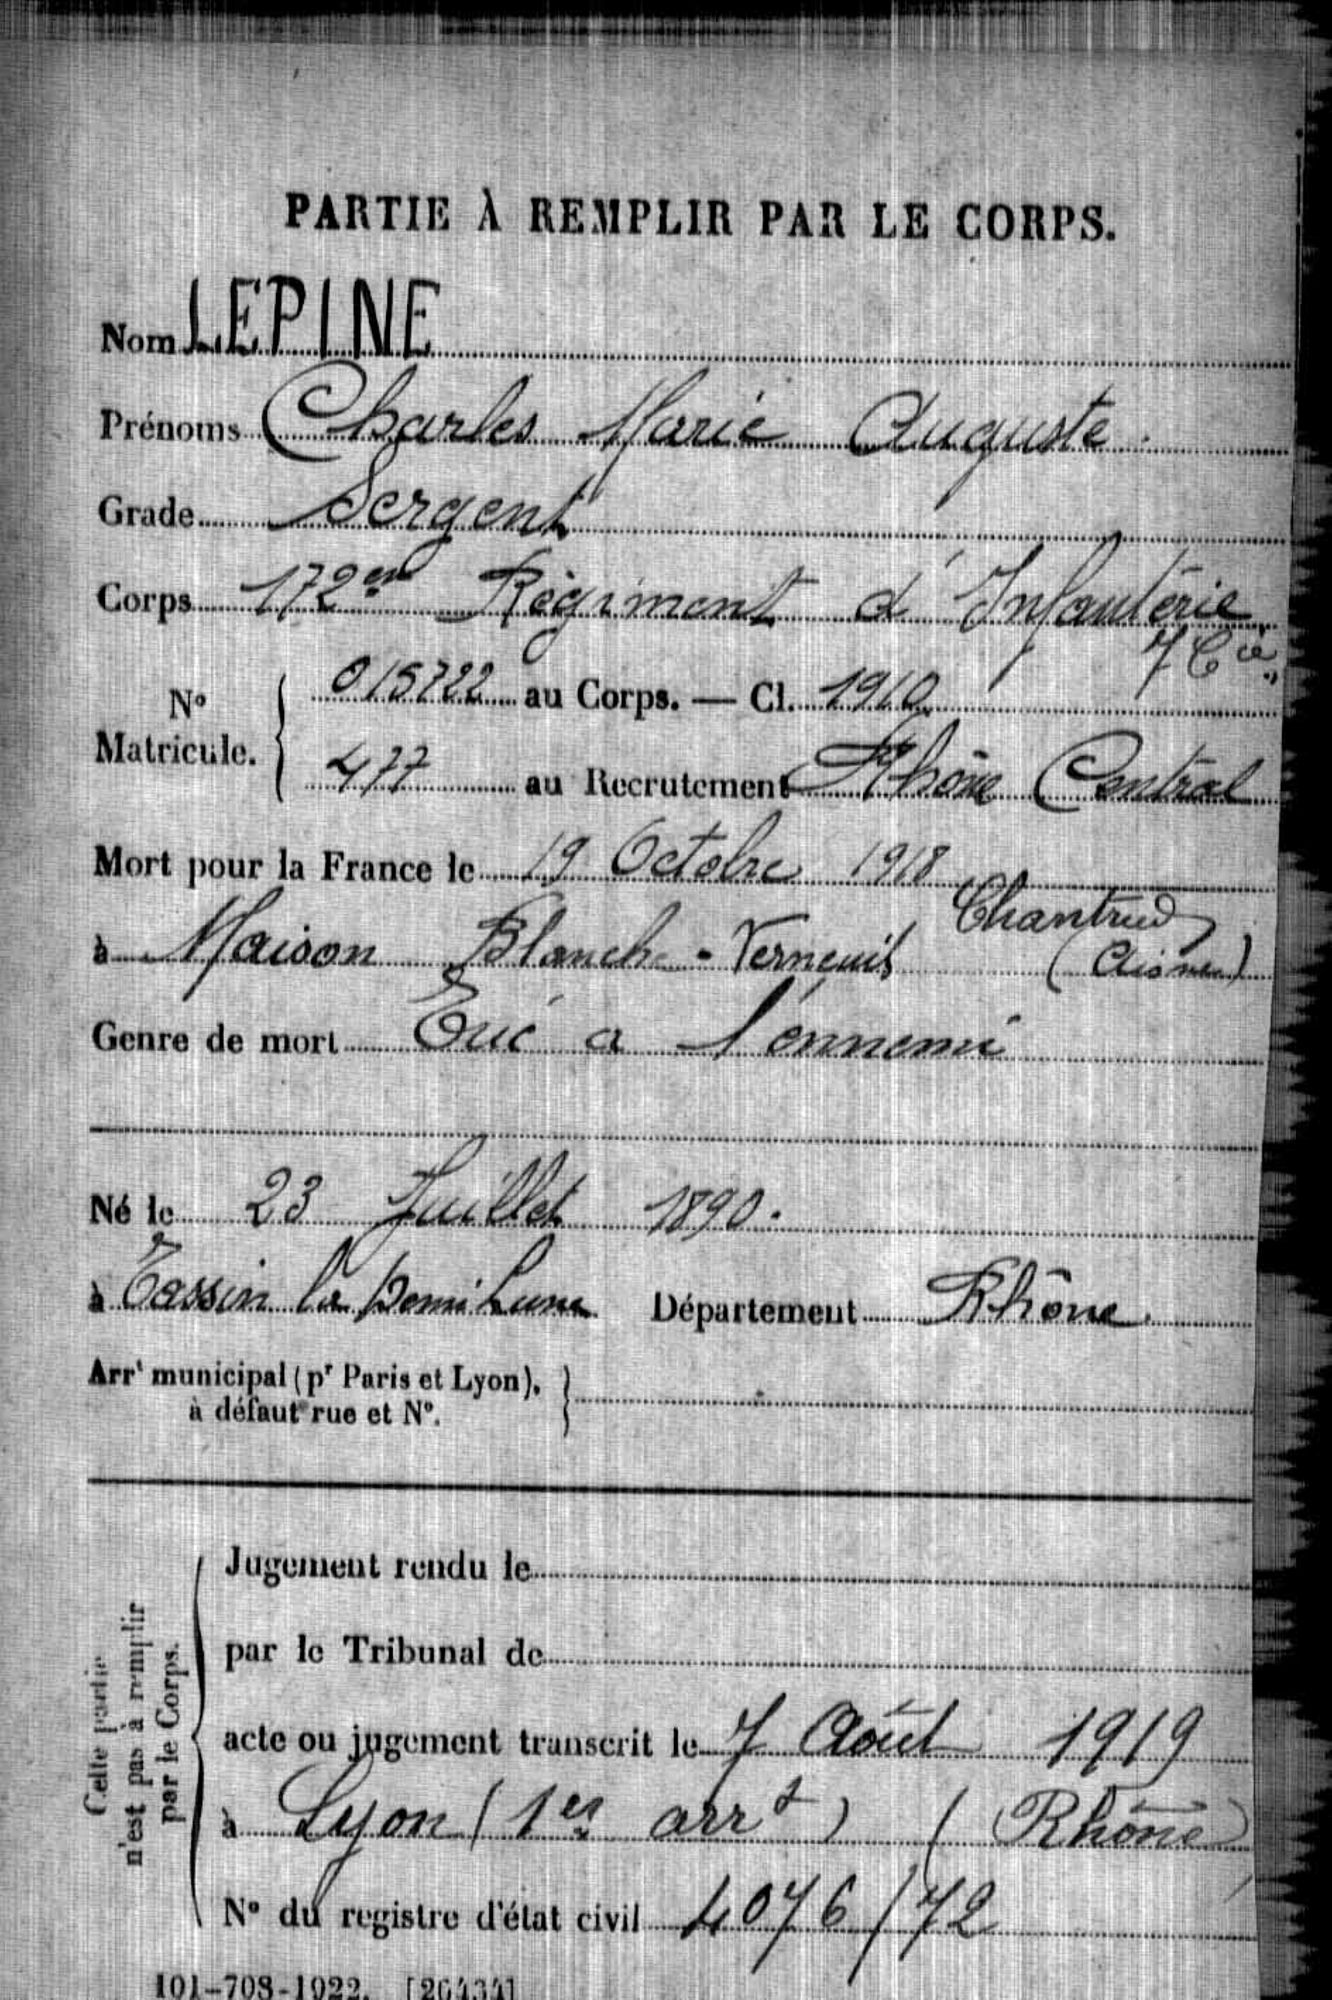 PARTIE À REMPLIR PAR LE CORPS.
Nom LEPINE
Prénoms Charles Marie Auguste.
Grade Sergent
Corps 172em Régiment d'Infanterie
7 Cie
No 015722 au Corps. — Cl. 1910
Matricule. 477 au Recrutement Rhône Central
Mort pour la France le 19 Octobre 1918
Chantrud
à Maison Blanche - Verneuil (Aisne)
Genre de mort Tué a l'ennemi
Né le 23 Juillet 1890.
à Tassin la Demi Lune Département Rhône.
Arrt municipal (pr Paris et Lyon),
à défaut rue et No.
Jugement rendu le
par le Tribunal de
acte ou jugement transcrit le 7 Août 1919
à Lyon (1er arrt) (Rhône)
No du registre d'état civil 4076/72
Cette partie
n'est pas à remplir
par le Corps.
101-708-1922. [26434]